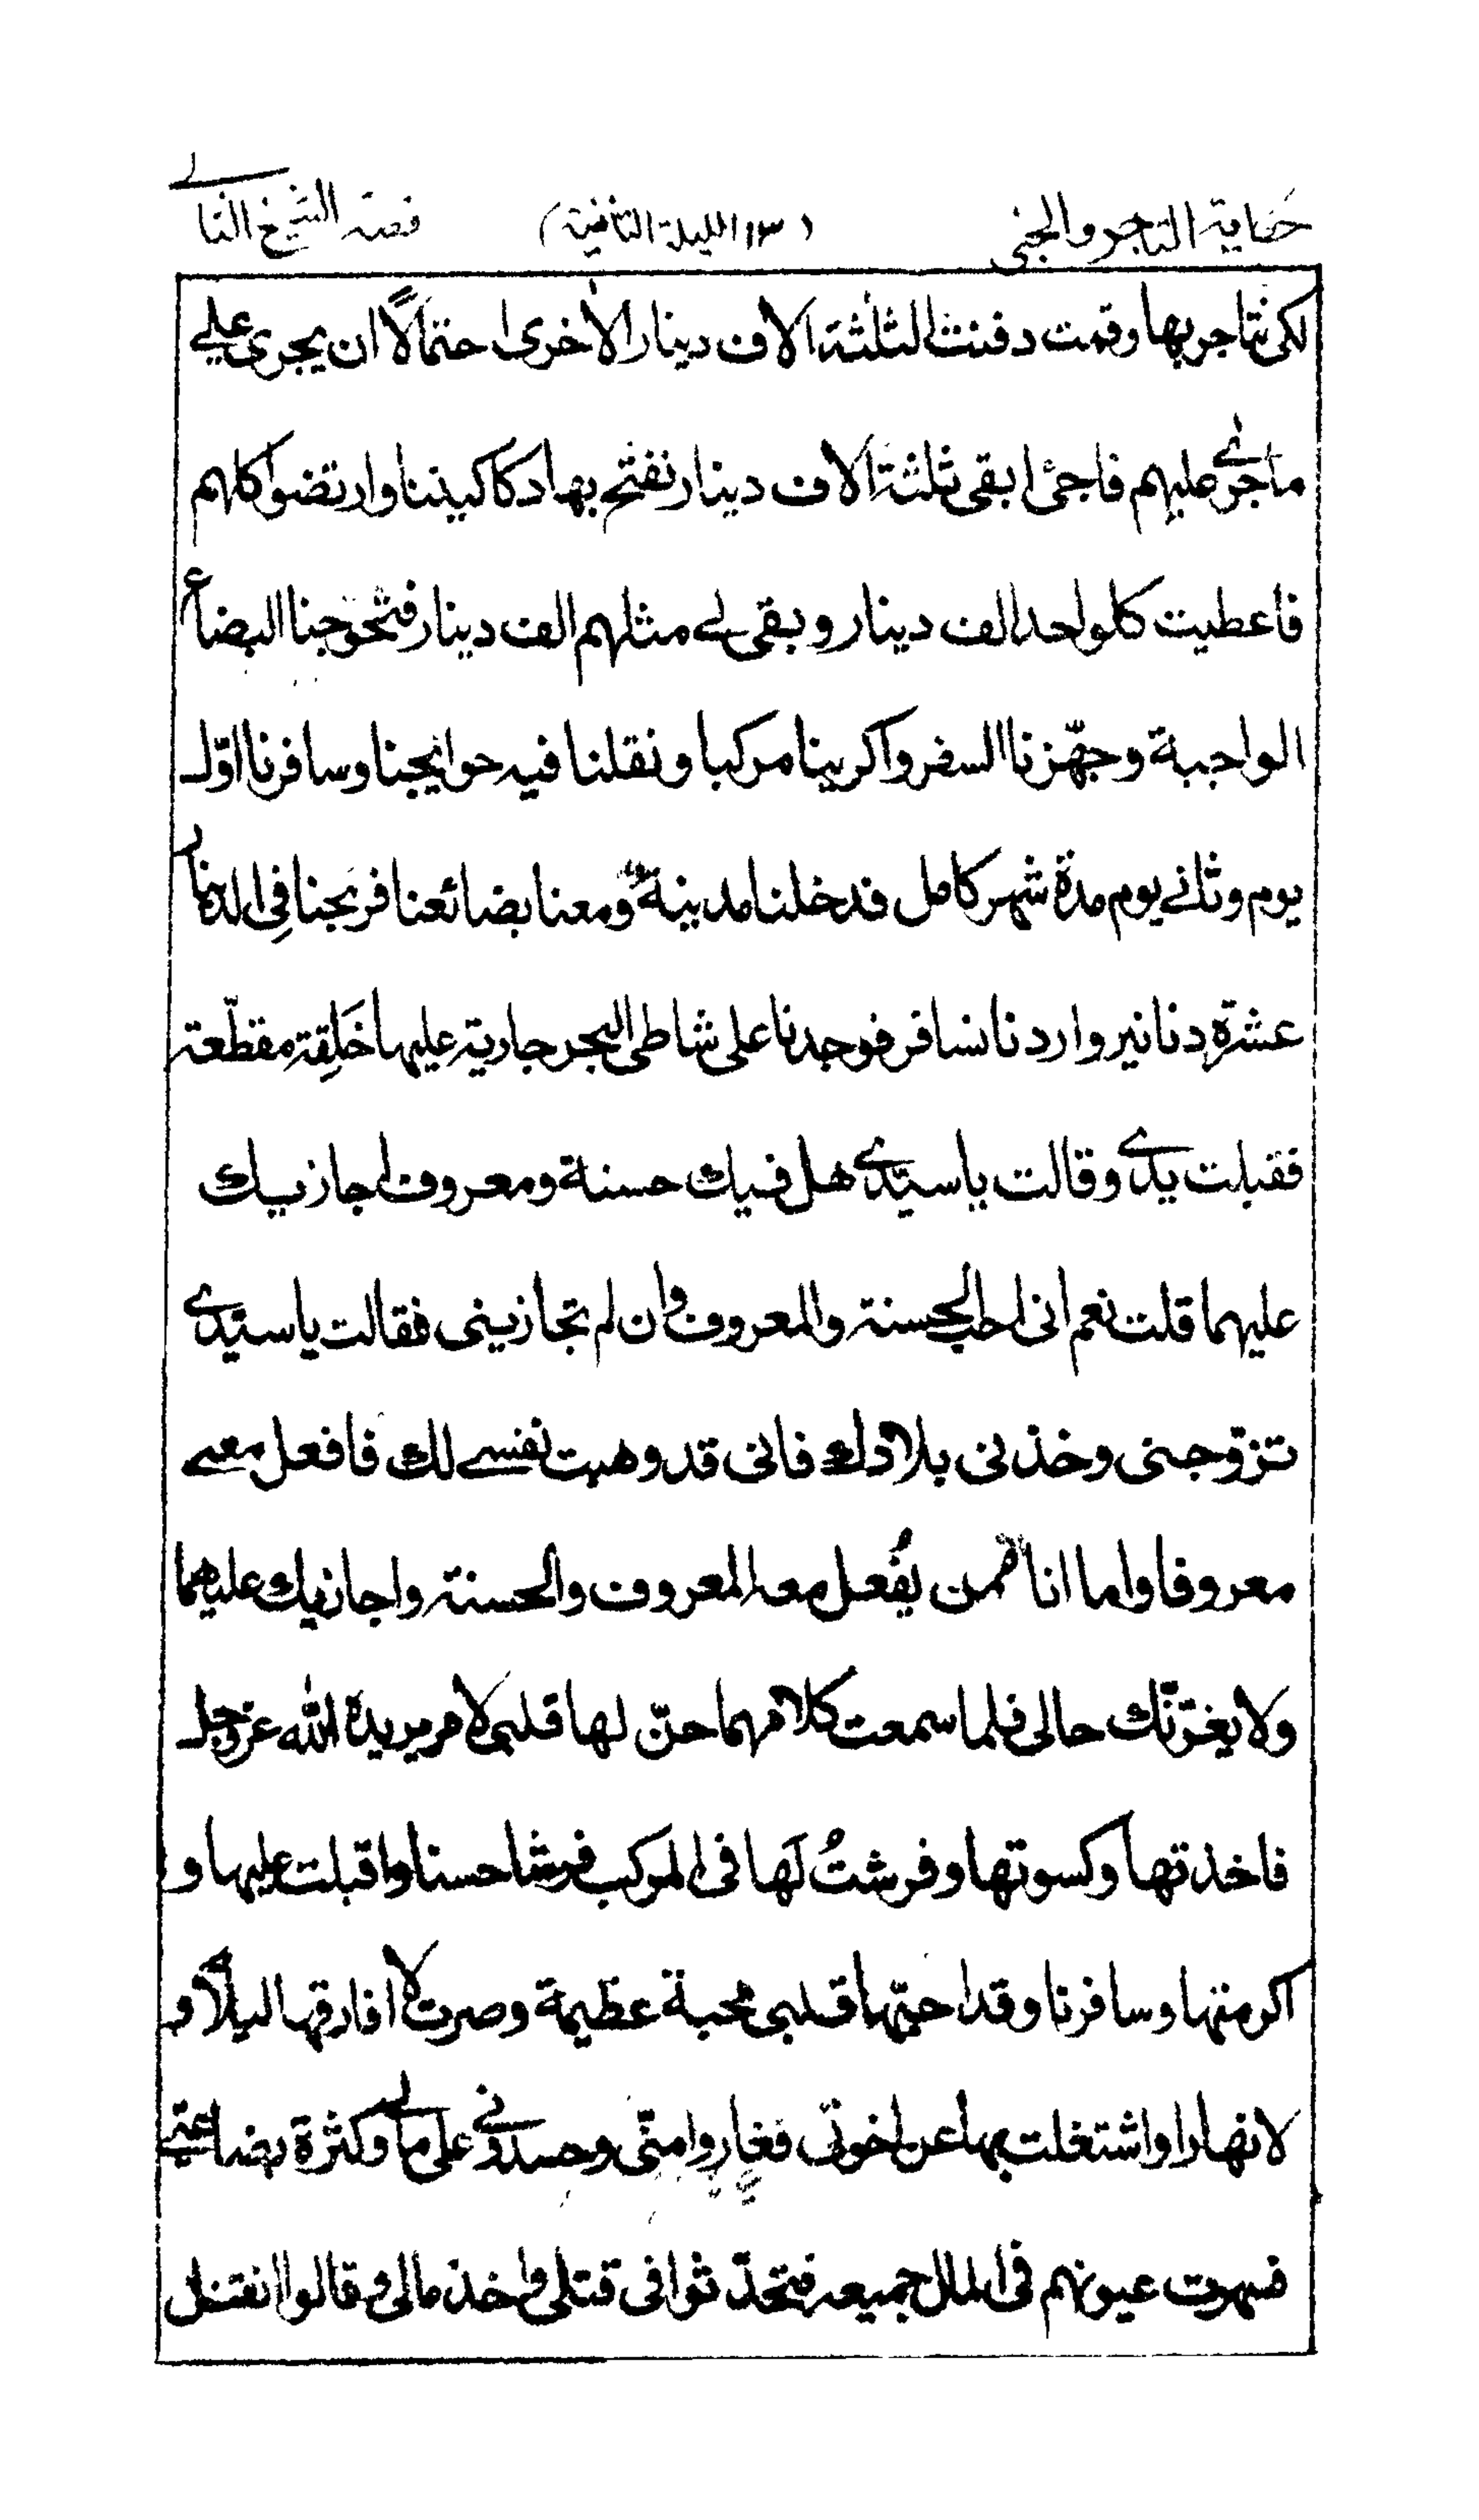 حكاية التاجر والجني (١٣ الليلة الثانية) قصة الشيخ الثاني
لكى نتاجر بها وقمت دفنت الثلثة الاف دينار الاخرى احتمالًا ان يجرى علي
ما جرى عليهم فاجئ ابقى ثلثة الاف دينار نفتح بها دكاكيننا وارتضوا كلهم
فاعطيت كلو احد الف دينار وبقى لى مثلهم الف دينار فتحوجنا البضاع
الواجبة وجهّزنا السفر واكرينا مركبا ونقلنا فيه حوايجنا وسافرنا اوّل
يوم وثانى يوم مدة شهر كامل قد خلنا مدينةً ومعنا بضائعنا فربحنا فِى الدينار
عشرة دنانير واردنا نسافر فوجدنا على شاطى البحر جارية عليها خَلِقة مقطّعة
فقبلت يدى وقالت يا سيّدى هل فيك حسنة ومعروف اجازيك
عليهما قلت نعم انى احب الحسنة والمعروف وان لم تجازينى فقالت يا سيّدى
تزوّجنى وخذنى بلادك فانى قد وهبت نفسى لك فافعل معى
معروفا واما انا ممن يُفعل معه المعروف والحسنة واجازيك عليهما
ولا يغرّنّك حالى فلما سمعت كلامهما حنّ لها قلبى لامر يريدة الله عز وجل
فاخذتها وكسوتها وفرشتُ لَها فى المركب فرشا حسنا واقبلت عليها و
اكرمتها وسافرنا وقد احبّتها قلبى محبة عظيمة وصرت لا افارقها ليلًا و
لا نهارا واشتغلت بها عن اخوتى فغاروا منّى وحسدونى على مالى وكثرة بضاعتى
فسهرت عيونهم فى المال جميعه فتحدّثوا فى قتلى واخذ مالى وقالوا انقتل